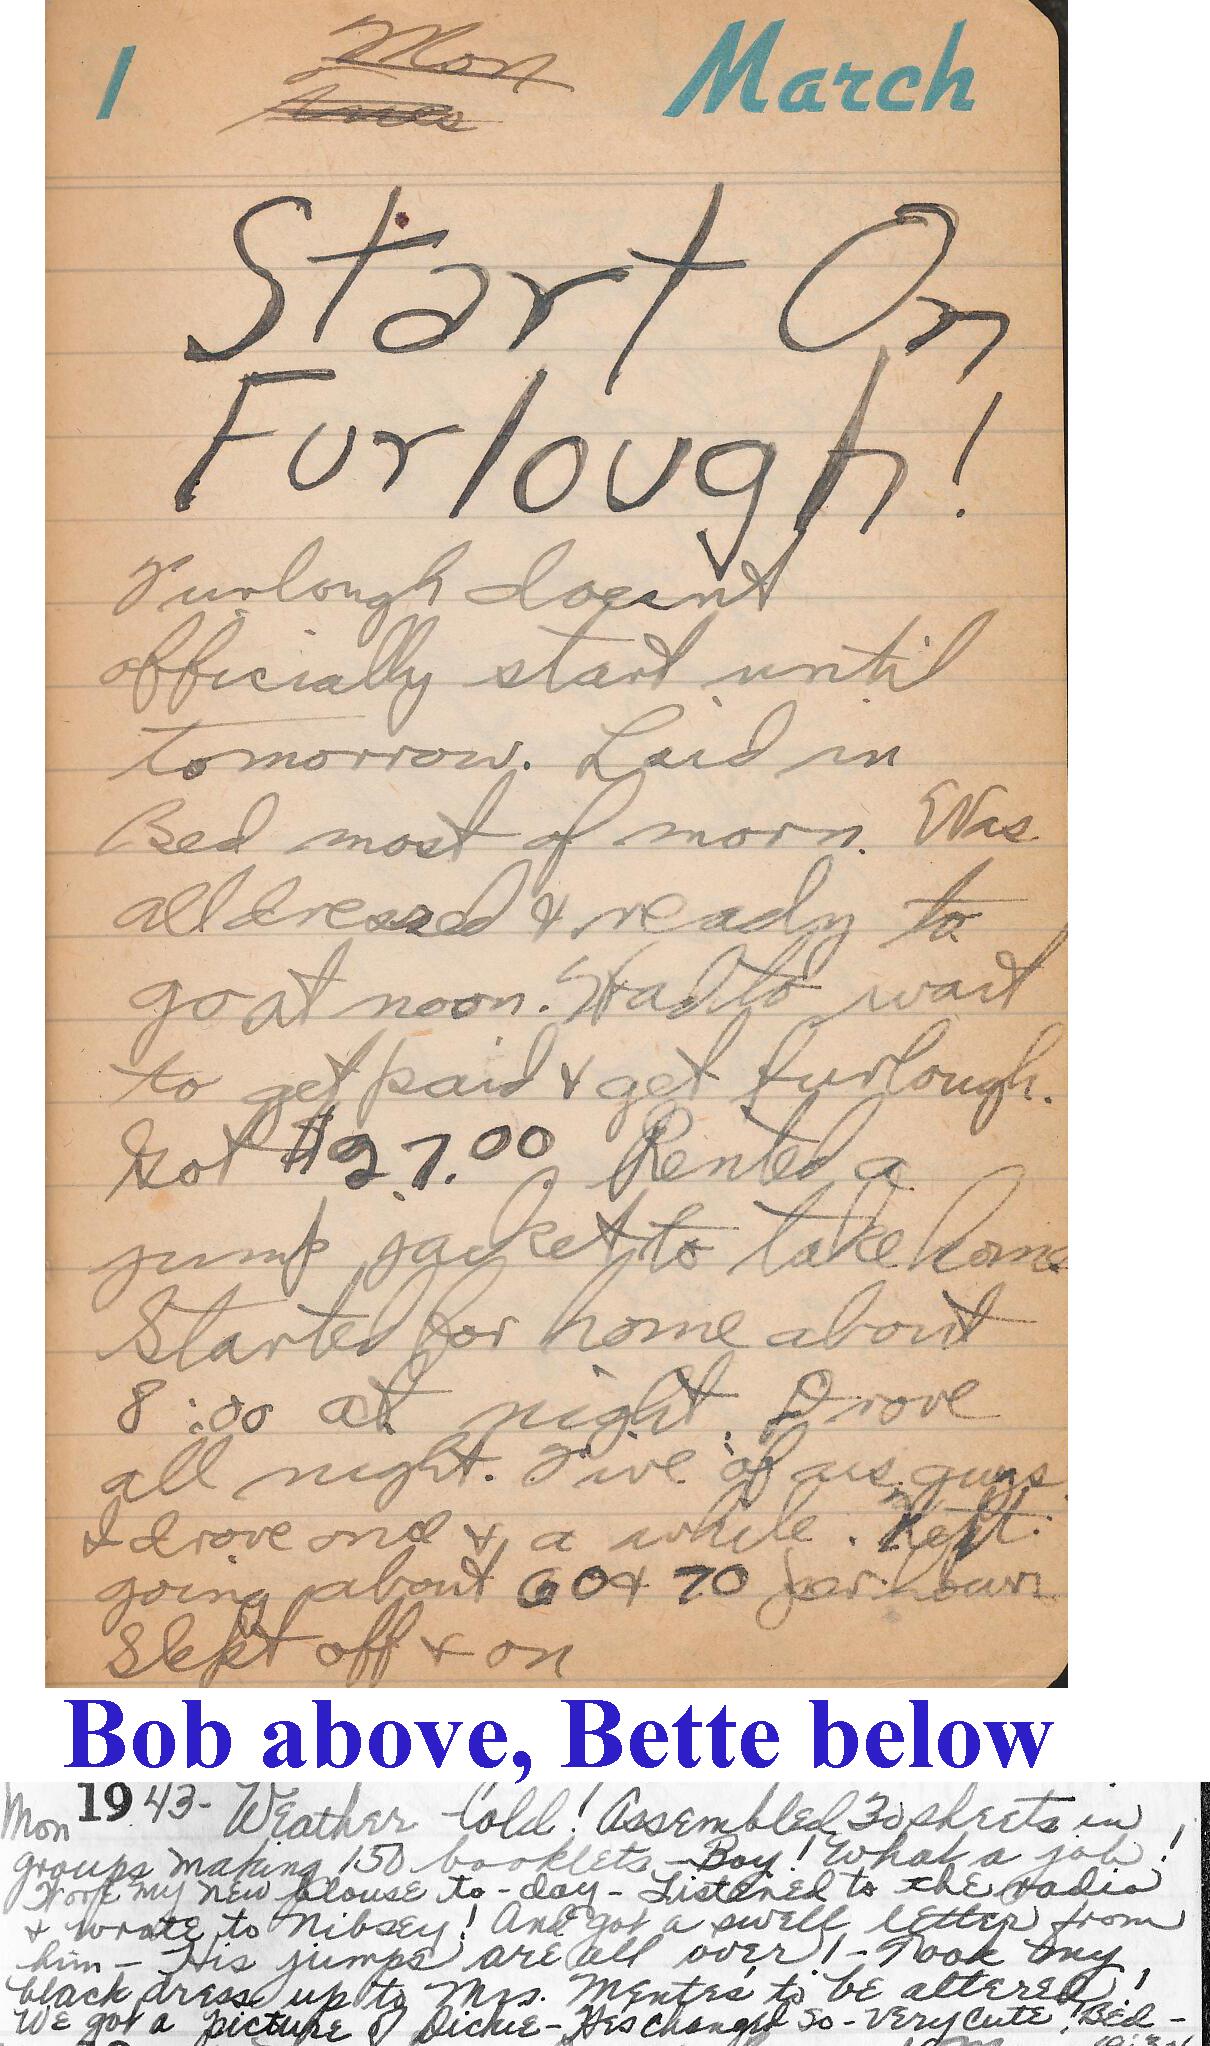 1 Mon March
Tues
Start On
Furlough!
Furlough doesnt
officially start until
tomorrow. Laid in
Bed most of morn. Was
all dressed & ready to
go at noon. Had to wait
to get paid & get furlough.
Got $27.00 Rented a
jump jacket to take home
Started for home about
8:00 at night. Drove
all night. Five of us guys.
I drove once & a while. Kept
going about 60 & 70 per hour.
Slept off & on
Bob above, Bette below
Mon 1943- Weather Cold! Assembled 30 sheets in
groups making 150 booklets - Boy! What a job!
Wore my new blouse to-day - Listened to the radio
& wrote to Nibsey! And got a swell letter from
him - His jumps are all over! - Took my
black dress up to Mrs. Mentes to be altered!
We got a picture of Dickie - Hes changed so - Very cute! Bed -